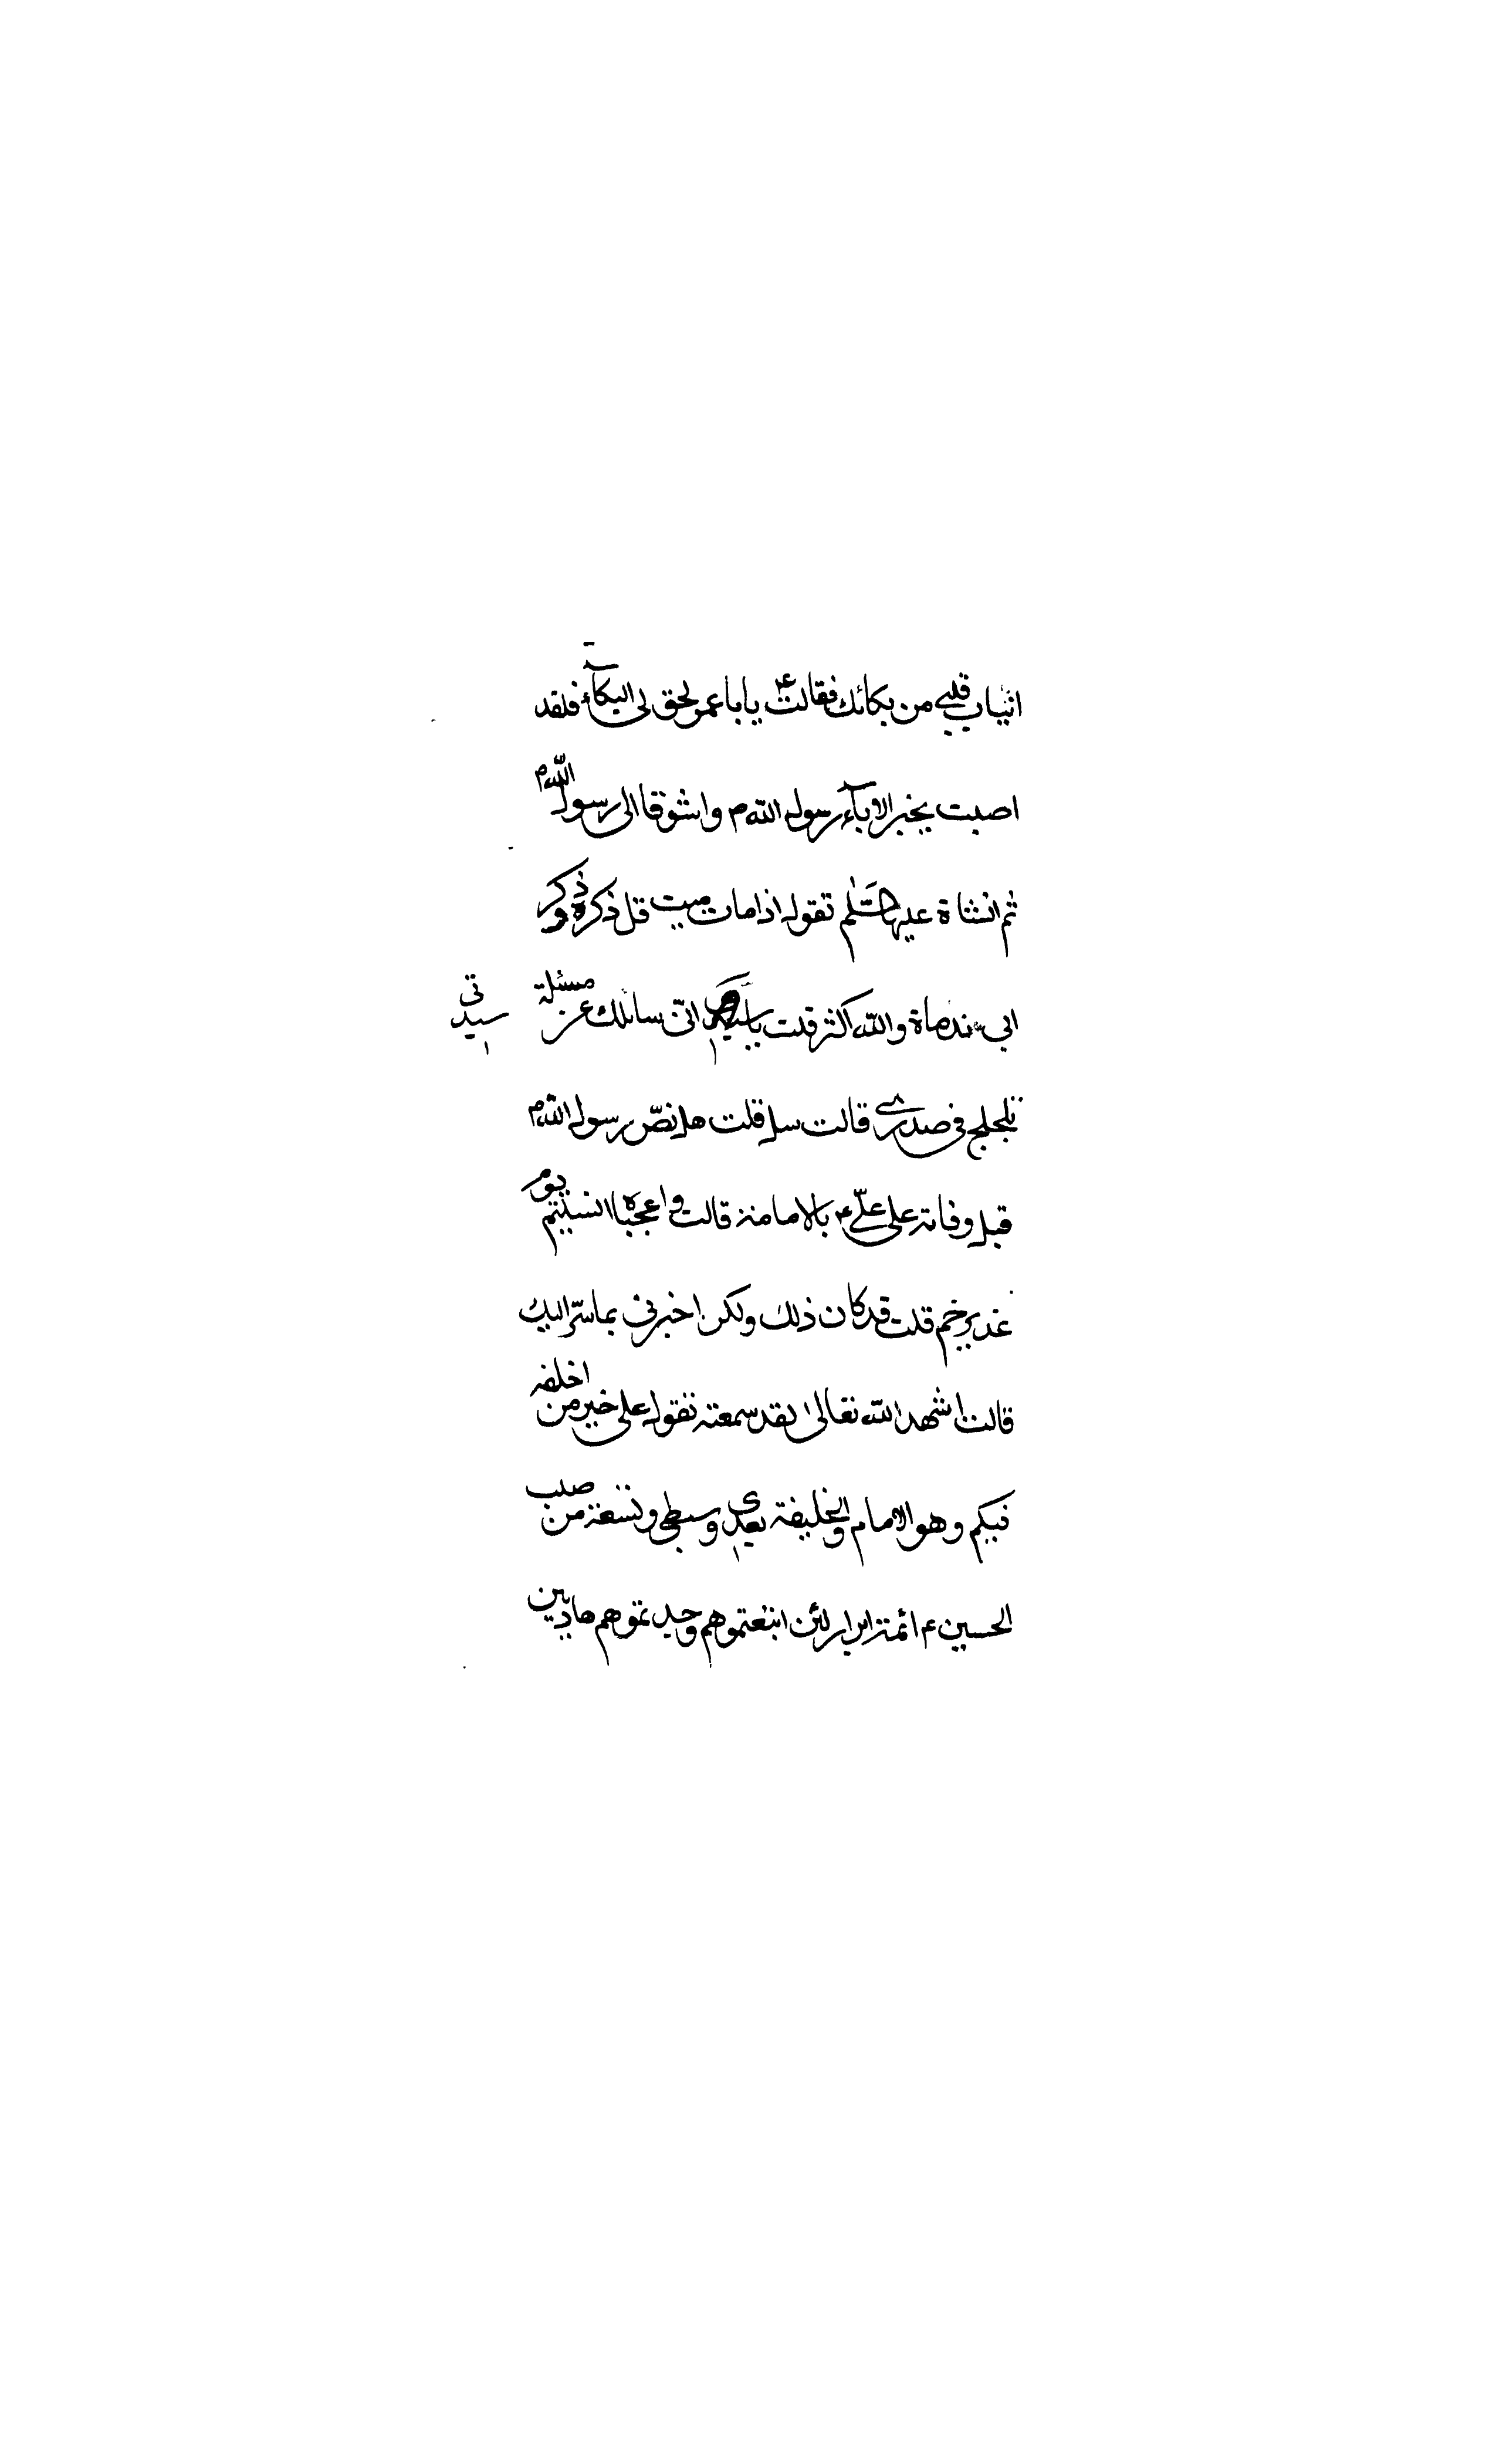 انياب قلبي من بكائك فقالت ع يا با عمر لحق لى البكآء فلقد
اصبت بخير الابآء رسول الله ص واشوقا الى رسول الله ص
ثم انشاة عليها السّلم تقول اذا مات ميت قل ذكره وذكر
ابي مذ مات والله اكثر قلت يا انى سائلك عن مسئلة
سيدتى
تلجلج فى صدرى قالت سل قلت هل نصّ رسول الله ص
قبل وفاته على علىّ ع بالامامة قالت واعجباه انسيتم يوم
غدير خم قلت قد كان ذلك ولكن اخبرنى بما اسرّ اليك
قالت اشهد الله تعالى لقد سمعته تقول على خير من اخلفه
فيكم وهو الامام والخليفة بعدى وسبطى وتسعة من صلب
الحسين ع ائمة ابرار لئن اتبعتموهم وجدتموهم هاديين